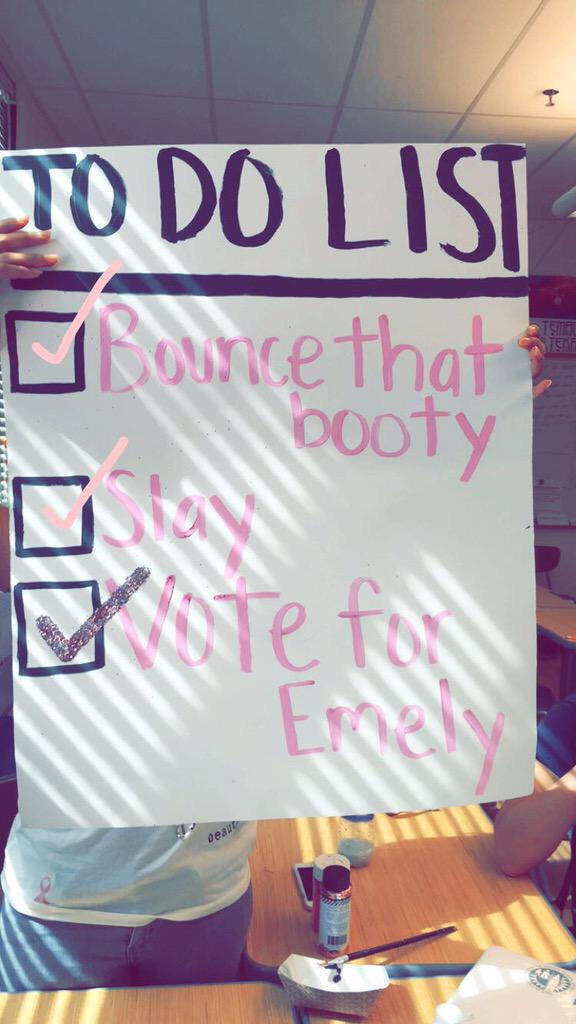 TO DO LIST
Bounce that
booty
Slay
Vote for
Emely
beaut